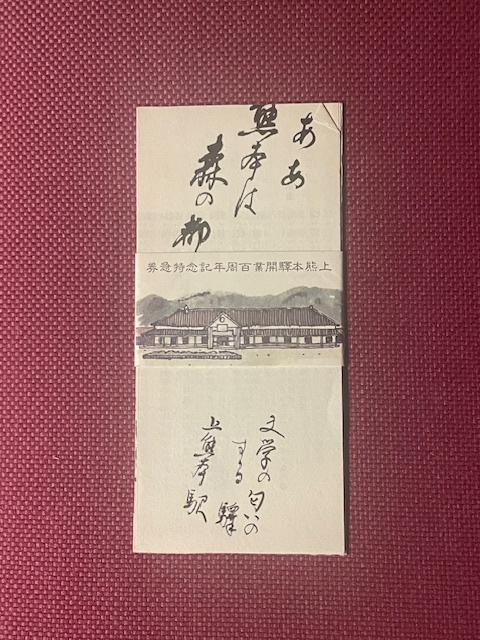 ああ
熊本は
森の都
上熊本驛開業百周年記念特急券
文学の匂いの
する驛
上熊本駅